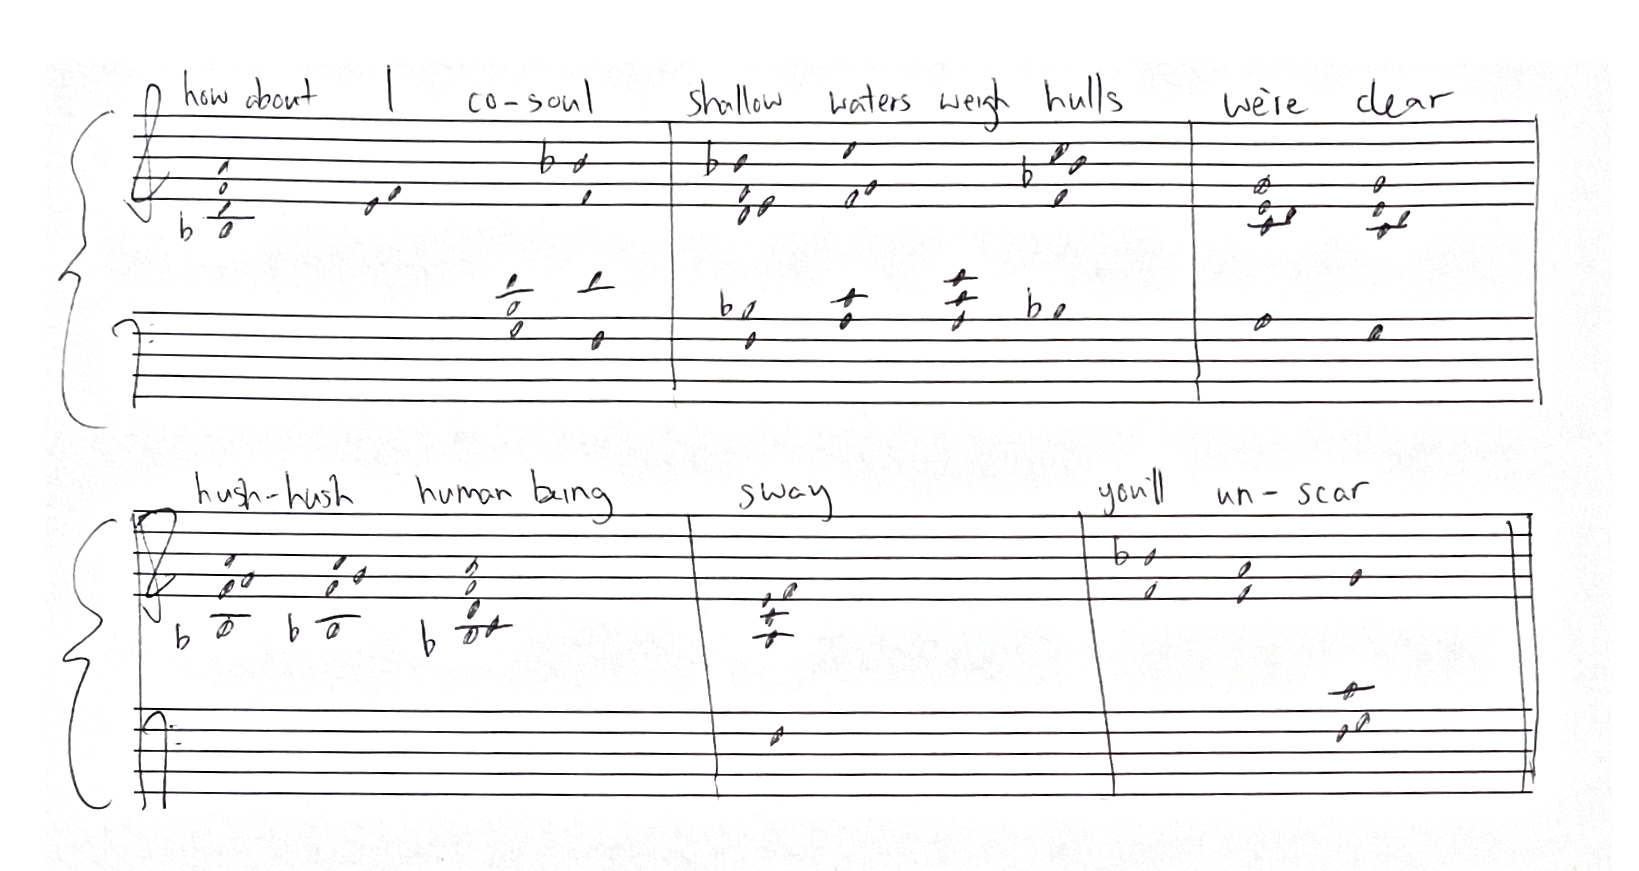 how about I co-soul shallow waters weigh hulls we're clear
hush-hush human being sway you'll un-scar